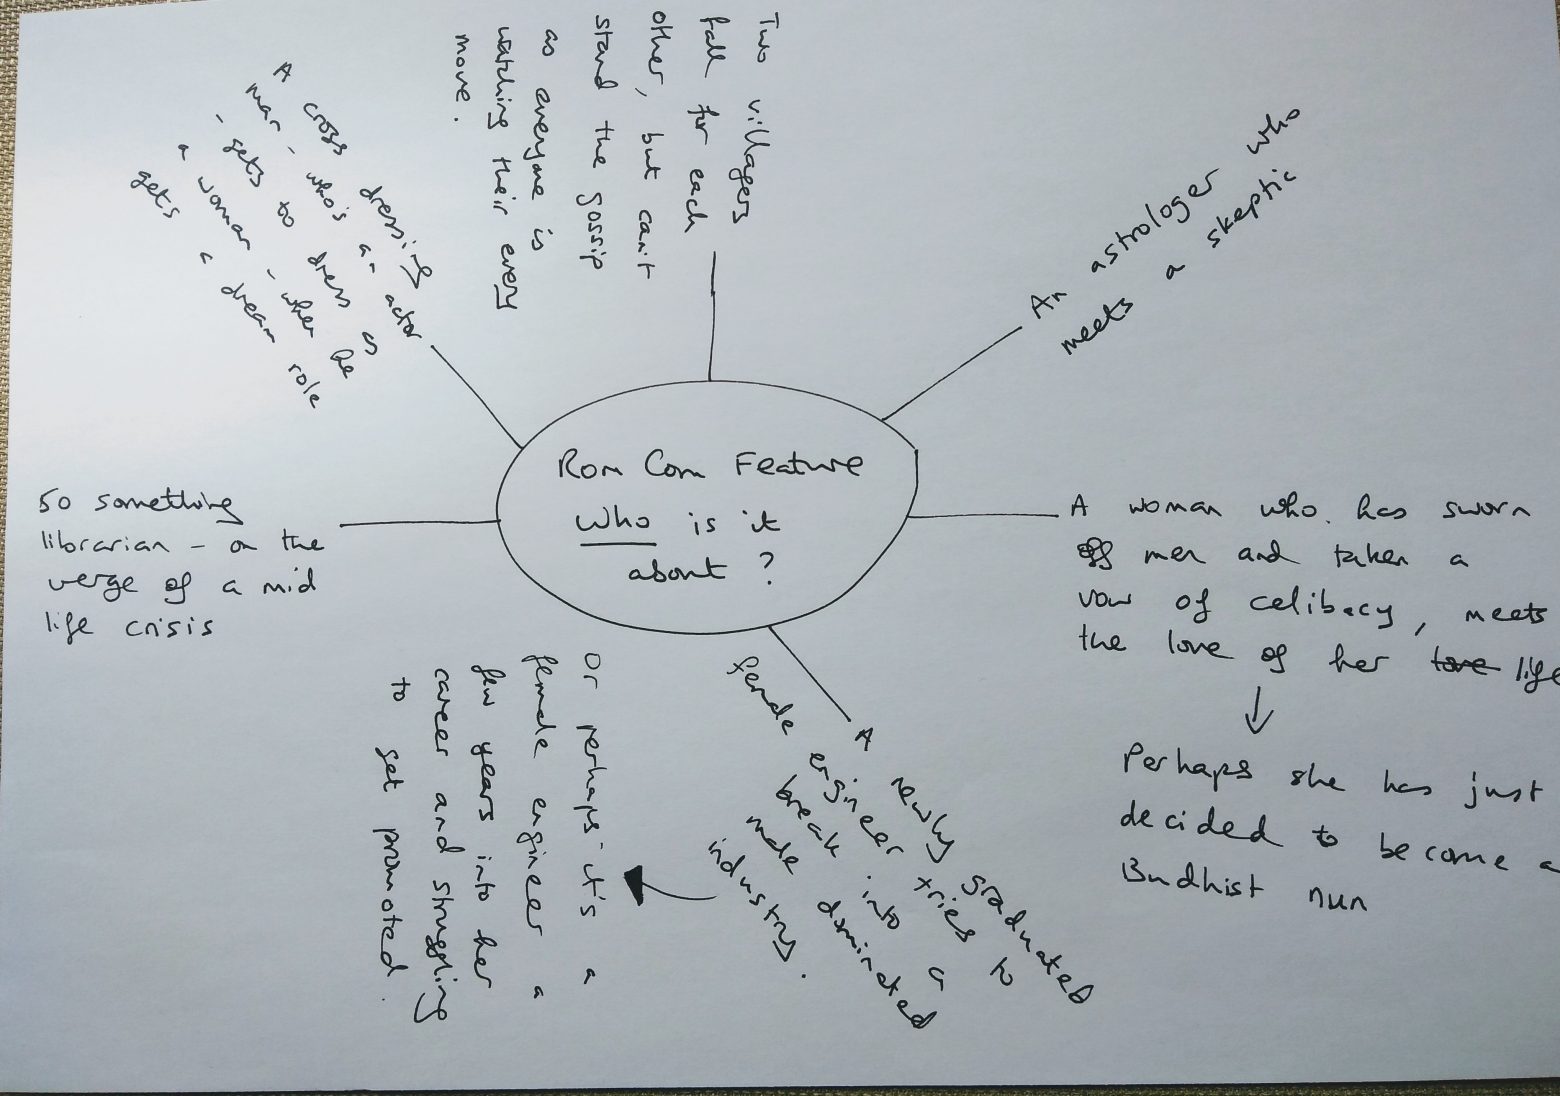 Rom Com Feature
Who is it
about?
Two villagers
fall for each
other, but can't
stand the gossip
as everyone is
watching their every
move.
An astrologer who
meets a skeptic
A woman who has sworn
off men and taken a
vow of celibacy, meets
the love of her love life
Perhaps she has just
decided to become a
Budhist nun
A newly graduated
female engineer tries to
break into a
male dominated
industry.
Or perhaps it's a
female engineer a
few years into her
career and struggling
to get promoted.
50 something
librarian - on the
verge of a mid
life crisis
A cross dressing
man - who's an actor
- gets to dress as
a woman - when he
gets a dream role